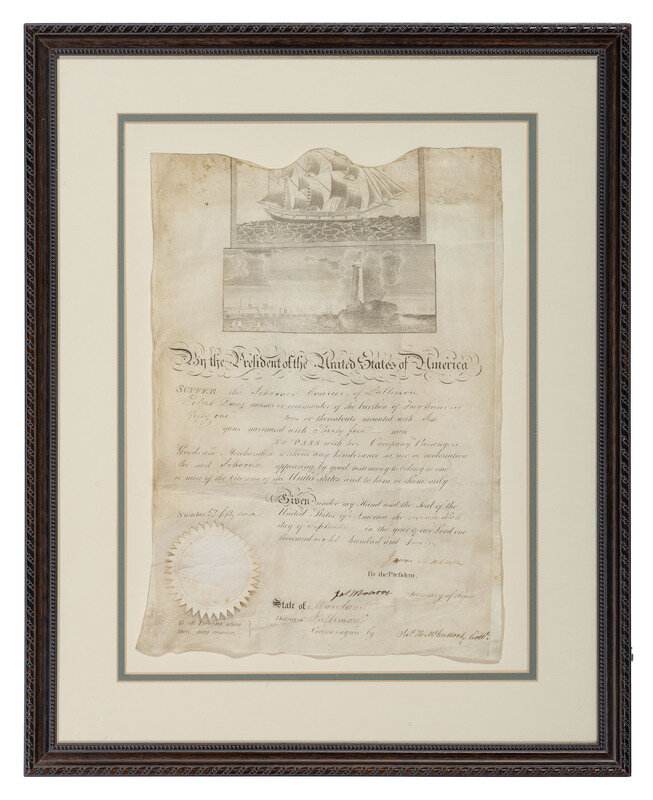 By the President of the United States of America
SUFFER the Schooner Courier, of Baltimore
master or commander of the burthen of two hundred
fifty one tons or thereabouts mounted with Six
guns navigated with Thirty five men
TO PASS with her Company Passengers
Goods and Merchandize without any hinderance seizure or molestation
the said Schooner appearing by good testimony to belong to one
or more of the Citizens of the United States and to him or them only
Given under my Hand and the Seal of the
Number 57 fifty seven
United States of America the
day of September in the year of our Lord one
thousand eight hundred and
James Madison
By the President,
Jas Monroe Secretary of State
State of Maryland
District of Baltimore
To all Persons whom
these may concern.
Countersigned by Collr.